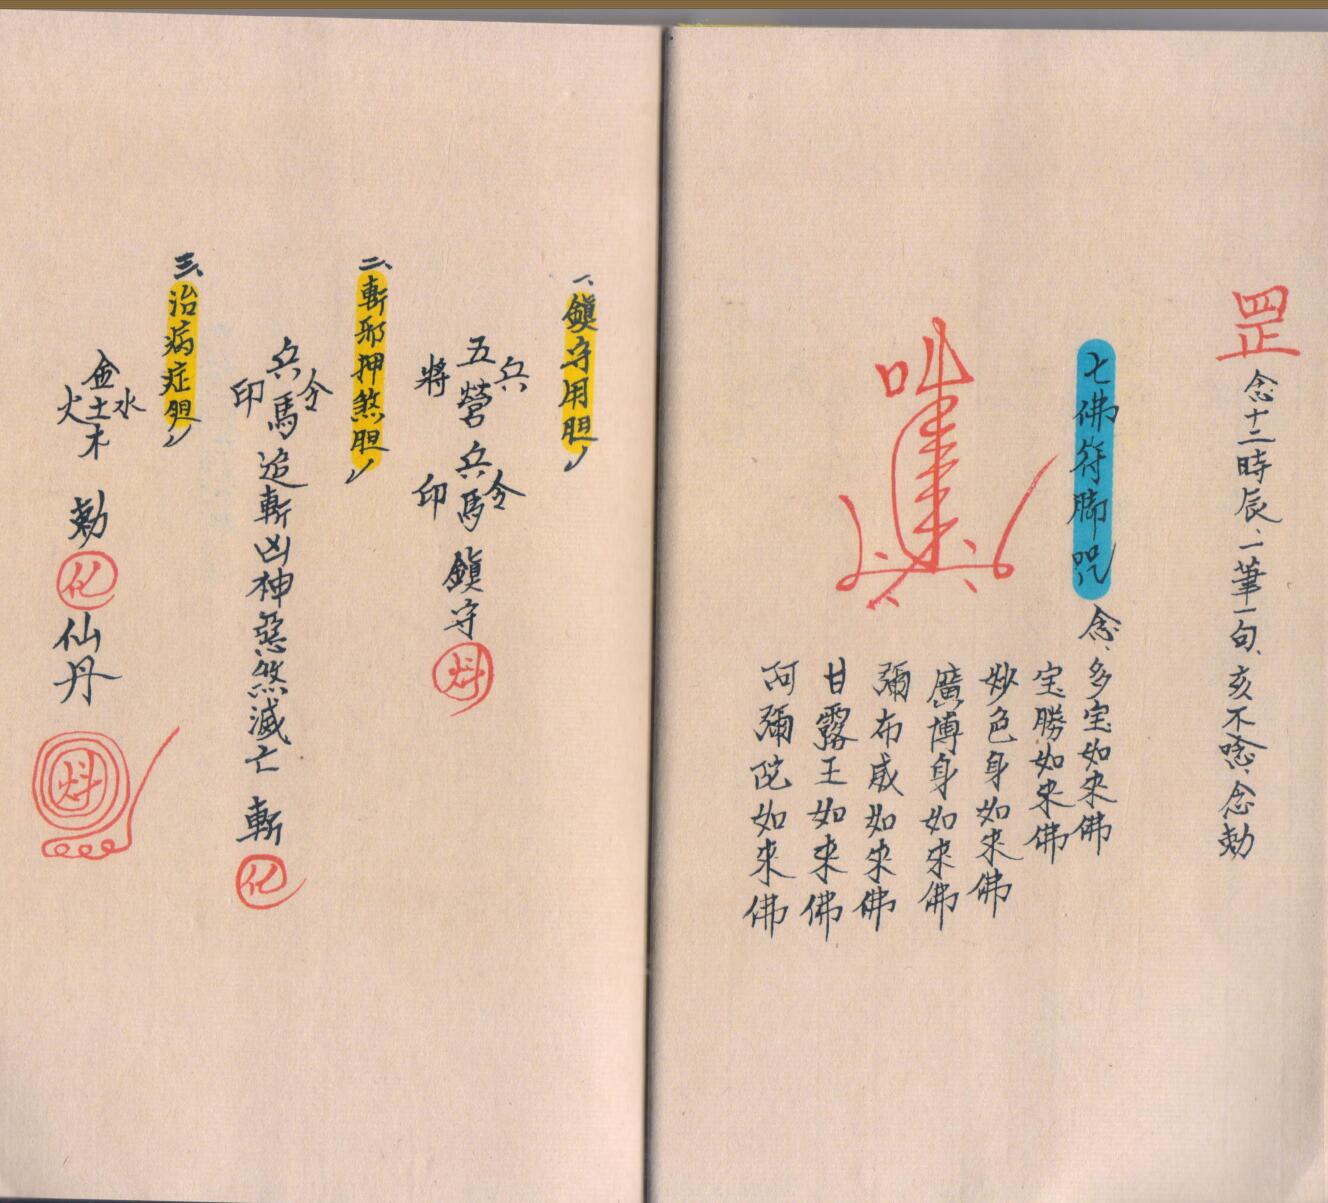 罡 念十二時辰、一筆一句、亥不唸、念勅
七佛符脚咒 念、多宝如來佛
宝勝如來佛
妙色身如來佛
廣博身如來佛
彌布威如來佛
甘露王如來佛
阿彌陀如來佛
一、鎮守用胆
兵
五營 兵馬 鎮守
將
令
印
二、斬邪押煞胆
令
兵馬追斬凶神惡煞滅亡 斬 化
印
三、治病症胆
水
金土木 勅 化 仙丹
火